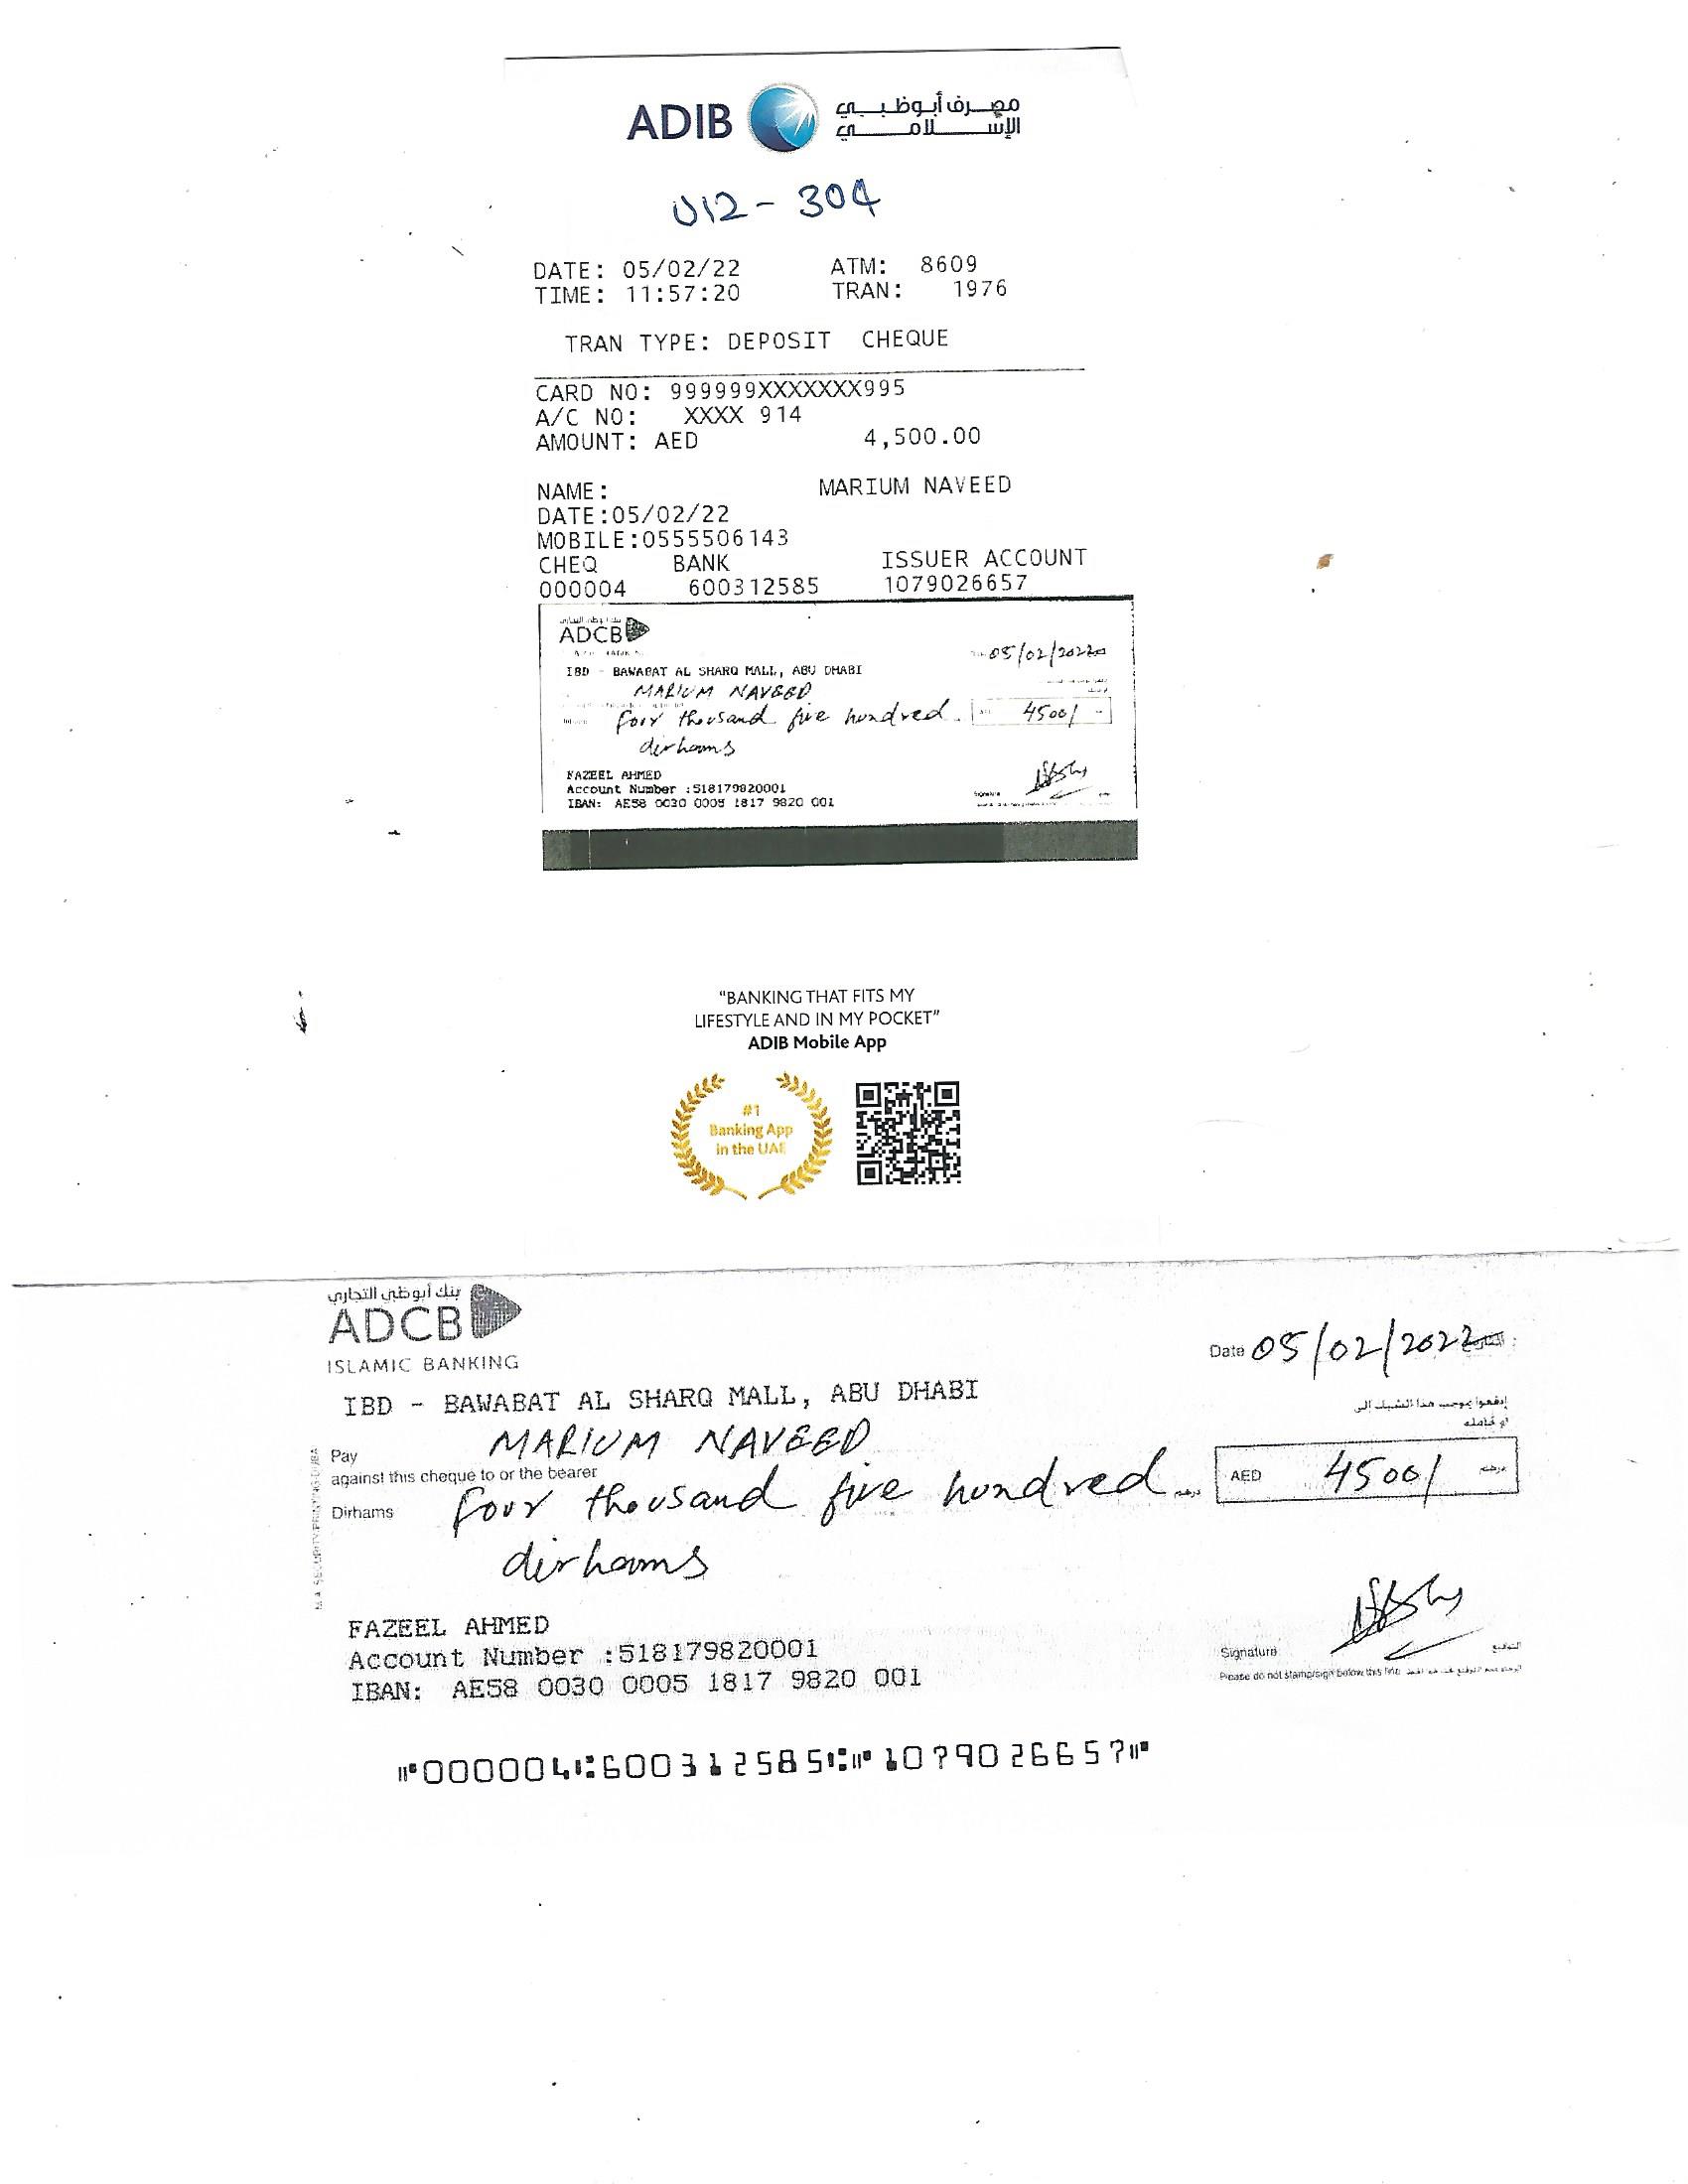 ADIB مصرف أبوظبي الإسلامي
U12 - 304
DATE: 05/02/22 ATM: 8609
TIME: 11:57:20 TRAN: 1976
TRAN TYPE: DEPOSIT CHEQUE
CARD NO: 999999XXXXXXX995
A/C NO: XXXX 914
AMOUNT: AED 4,500.00
NAME: MARIUM NAVEED
DATE:05/02/22
MOBILE:0555506143
CHEQ BANK ISSUER ACCOUNT
000004 600312585 1079026657
بنك أبوظبي التجاري
ADCB
05/02/2022
IBD - BAWABAT AL SHARQ MALL, ABU DHABI
MARIUM NAVEED
four thousand five hundred 4500/
dirhams
FAZEEL AHMED
Account Number :518179820001
IBAN: AE58 0030 0005 1817 9820 001
Signature
"BANKING THAT FITS MY
LIFESTYLE AND IN MY POCKET"
ADIB Mobile App
#1
Banking App
in the UAE
بنك أبوظبي التجاري
ADCB
ISLAMIC BANKING
Date 05/02/2022 التاريخ :
IBD - BAWABAT AL SHARQ MALL, ABU DHABI
إدفعوا بموجب هذا الشيك إلى
أو لحامله
Pay MARIUM NAVEED
against this cheque to or the bearer
Dirhams four thousand five hundred درهم AED 4500/ درهم
dirhams
FAZEEL AHMED
Account Number :518179820001
IBAN: AE58 0030 0005 1817 9820 001
Signature التوقيع
Please do not stamp/sign below this line
⑈000004⑆600312585⑆⑈1079026657⑈